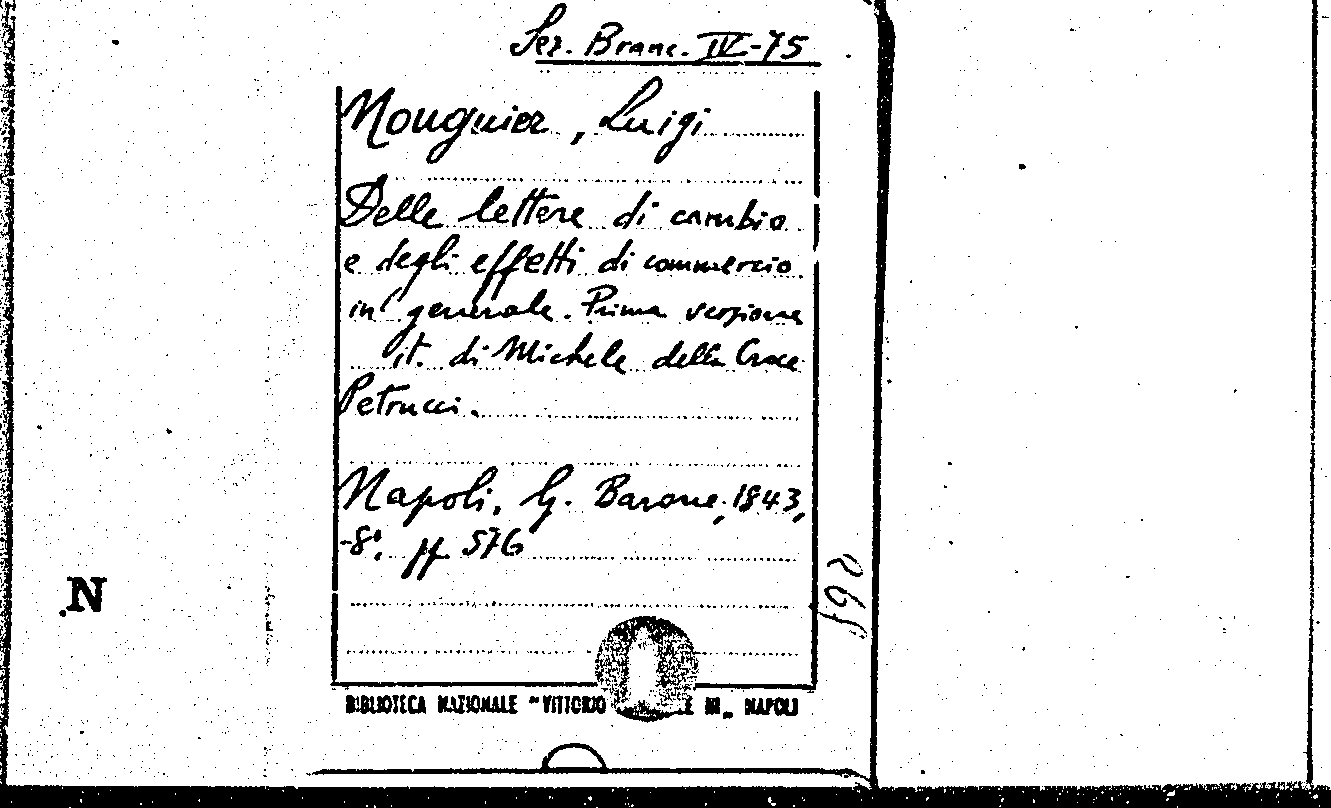 Sez. Branc. IV-75
Nouguier, Luigi
Delle lettere di cambio
e degli effetti di commercio
in generale. Prima versione
it. di Michele della Croce
Petrucci.
Napoli, G. Barone, 1843,
-8°. pp. 576
N
BIBLIOTECA NAZIONALE "VITTORIO E III„ NAPOLI